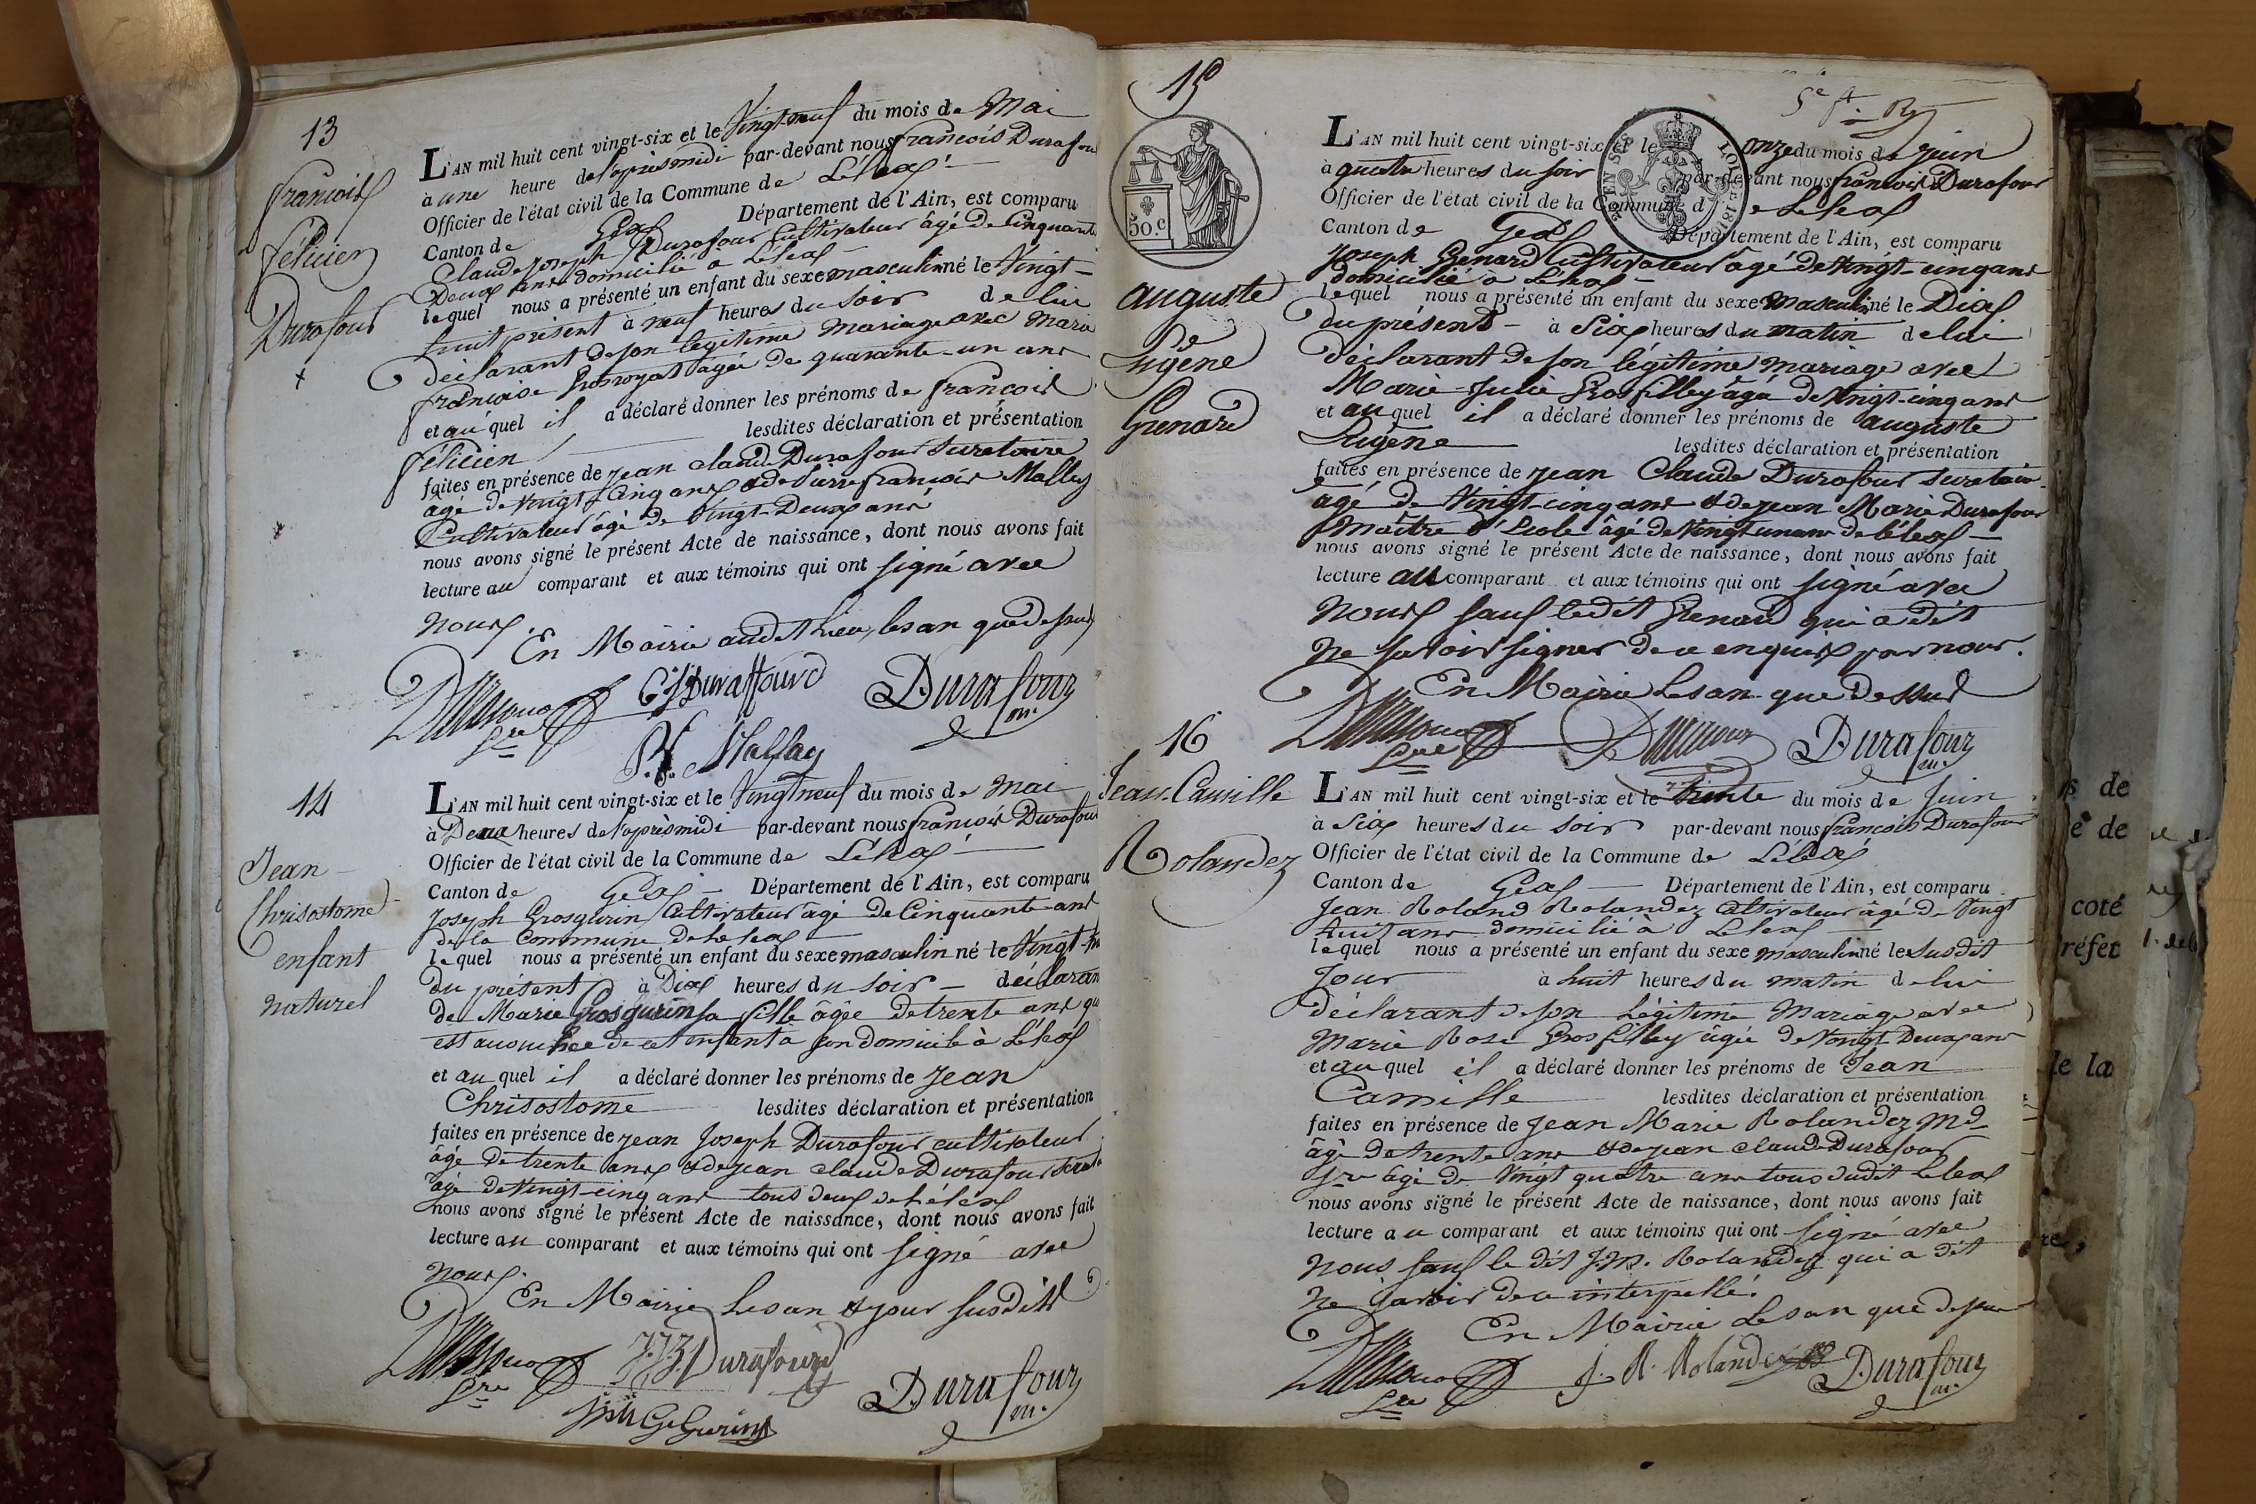 13
François
Félicien
Durafour
L'AN mil huit cent vingt-six et le Vingt neuf du mois de Mai
à une heure de l'après midi par-devant nous françois Durafour
Officier de l'état civil de la Commune de Léleax
Canton de Geax Département de l'Ain, est comparu
Claude Joseph Durafour Cultivateur âgé de Cinquante
Deux ans domicilié a Léleax
lequel nous a présenté un enfant du sexe masculin né le Vingt-
huit présent à neuf heures du soir de lui
déclarant de son légitime Mariage avec Marie
françoise Grosroyat âgée de quarante-un ans
et au quel il a déclaré donner les prénoms de françois
félicien lesdites déclaration et présentation
faites en présence de jean claude Durafour Secretaire
âgé de vingt-cinq ans & de Pierre françois Malley
Cultivateur âgé de Vingt-Deux ans
nous avons signé le présent Acte de naissance, dont nous avons fait
lecture au comparant et aux témoins qui ont signé avec
Nous.
En Mairie audit lieu, les an que dessus
Durafour CJ Duraffourd Durafour
Sre m.
P. F. Mallay
14
Jean
Chrisostome
enfant
naturel
L'AN mil huit cent vingt-six et le Vingt neuf du mois de Mai
à Deux heures de l'après midi par-devant nous françois Durafour
Officier de l'état civil de la Commune de Léleax
Canton de Geax Département de l'Ain, est comparu
Joseph Grosgurin Cultivateur âgé de Cinquante ans
de la Commune de Leleax
lequel nous a présenté un enfant du sexe masculin né le Vingt-
du présent à Dix heures du soir déclarant
de Marie Grosgurin sa fille âgée de trente ans qui
est accouchée de cet enfant à son domicile à Léleax
et au quel il a déclaré donner les prénoms de jean
Chrisostome lesdites déclaration et présentation
faites en présence de jean Joseph Durafour cultivateur
âgé de trente ans & de jean claude Durafour
âgé de Vingt-cinq ans tous deux de Léleax
nous avons signé le présent Acte de naissance, dont nous avons fait
lecture au comparant et aux témoins qui ont signé avec
Nous.
En Mairie Les an & jour susdits
Durafour JJ Durafourd Durafour
Sre m.
Jph GsGurin
15
50.c
auguste
Eugène
Grenard
L'AN mil huit cent vingt-six et le onze du mois de juin
à quatre heures du soir par-devant nous françois Durafour
Officier de l'état civil de la Commune de Léleax
Canton de Geax Département de l'Ain, est comparu
Joseph Grenard Cultivateur âgé de Vingt-cinq ans
domicilié à Léleax
lequel nous a présenté un enfant du sexe Masculin né le Dix
du présent à Six heures du matin de lui
déclarant de son légitime mariage avec
Marie-Julie Grosfilley âgé de Vingt-cinq ans
et au quel il a déclaré donner les prénoms de auguste
Eugène lesdites déclaration et présentation
faites en présence de jean Claude Durafour secretaire
âgé de Vingt-cinq ans & de jean Marie Durafour
Maître d'Ecole âgé de Vingt un ans de Léleax
nous avons signé le présent Acte de naissance, dont nous avons fait
lecture au comparant et aux témoins qui ont signé avec
Nous sauf ledit Grenard qui a dit
Ne savoir signer de ce enquis par nous.
En Mairie Les an que Dessus
Durafour Durafour Durafour
Sre m.
16
Jean-Camille
Rolandez
L'AN mil huit cent vingt-six et le Trente du mois de Juin
à Six heures du soir par-devant nous françois Durafour
Officier de l'état civil de la Commune de Léleax
Canton de Geax Département de l'Ain, est comparu
Jean Roland Rolandez Cultivateur âgé de Vingt
huit ans domicilié à Léleax
lequel nous a présenté un enfant du sexe masculin né le susdit
Jour à huit heures du matin de lui
déclarant de son Légitime Mariage avec
Marie Rose Grosfilley âgée de Vingt Deux ans
et au quel il a déclaré donner les prénoms de Jean
Camille lesdites déclaration et présentation
faites en présence de jean Marie Rolandez Md
âgé de trente ans & de jean claude Durafour
Sre âgé de Vingt quatre ans tous dudit Léleax
nous avons signé le présent Acte de naissance, dont nous avons fait
lecture au comparant et aux témoins qui ont signé avec
Nous sauf le dit J.M. Rolandez qui a dit
Ne savoir de ce interpellé.
En Mairie Les an que dessus
Durafour J. R. Rolandez Durafour
Sre m.
de
de
coté
préfet
de la